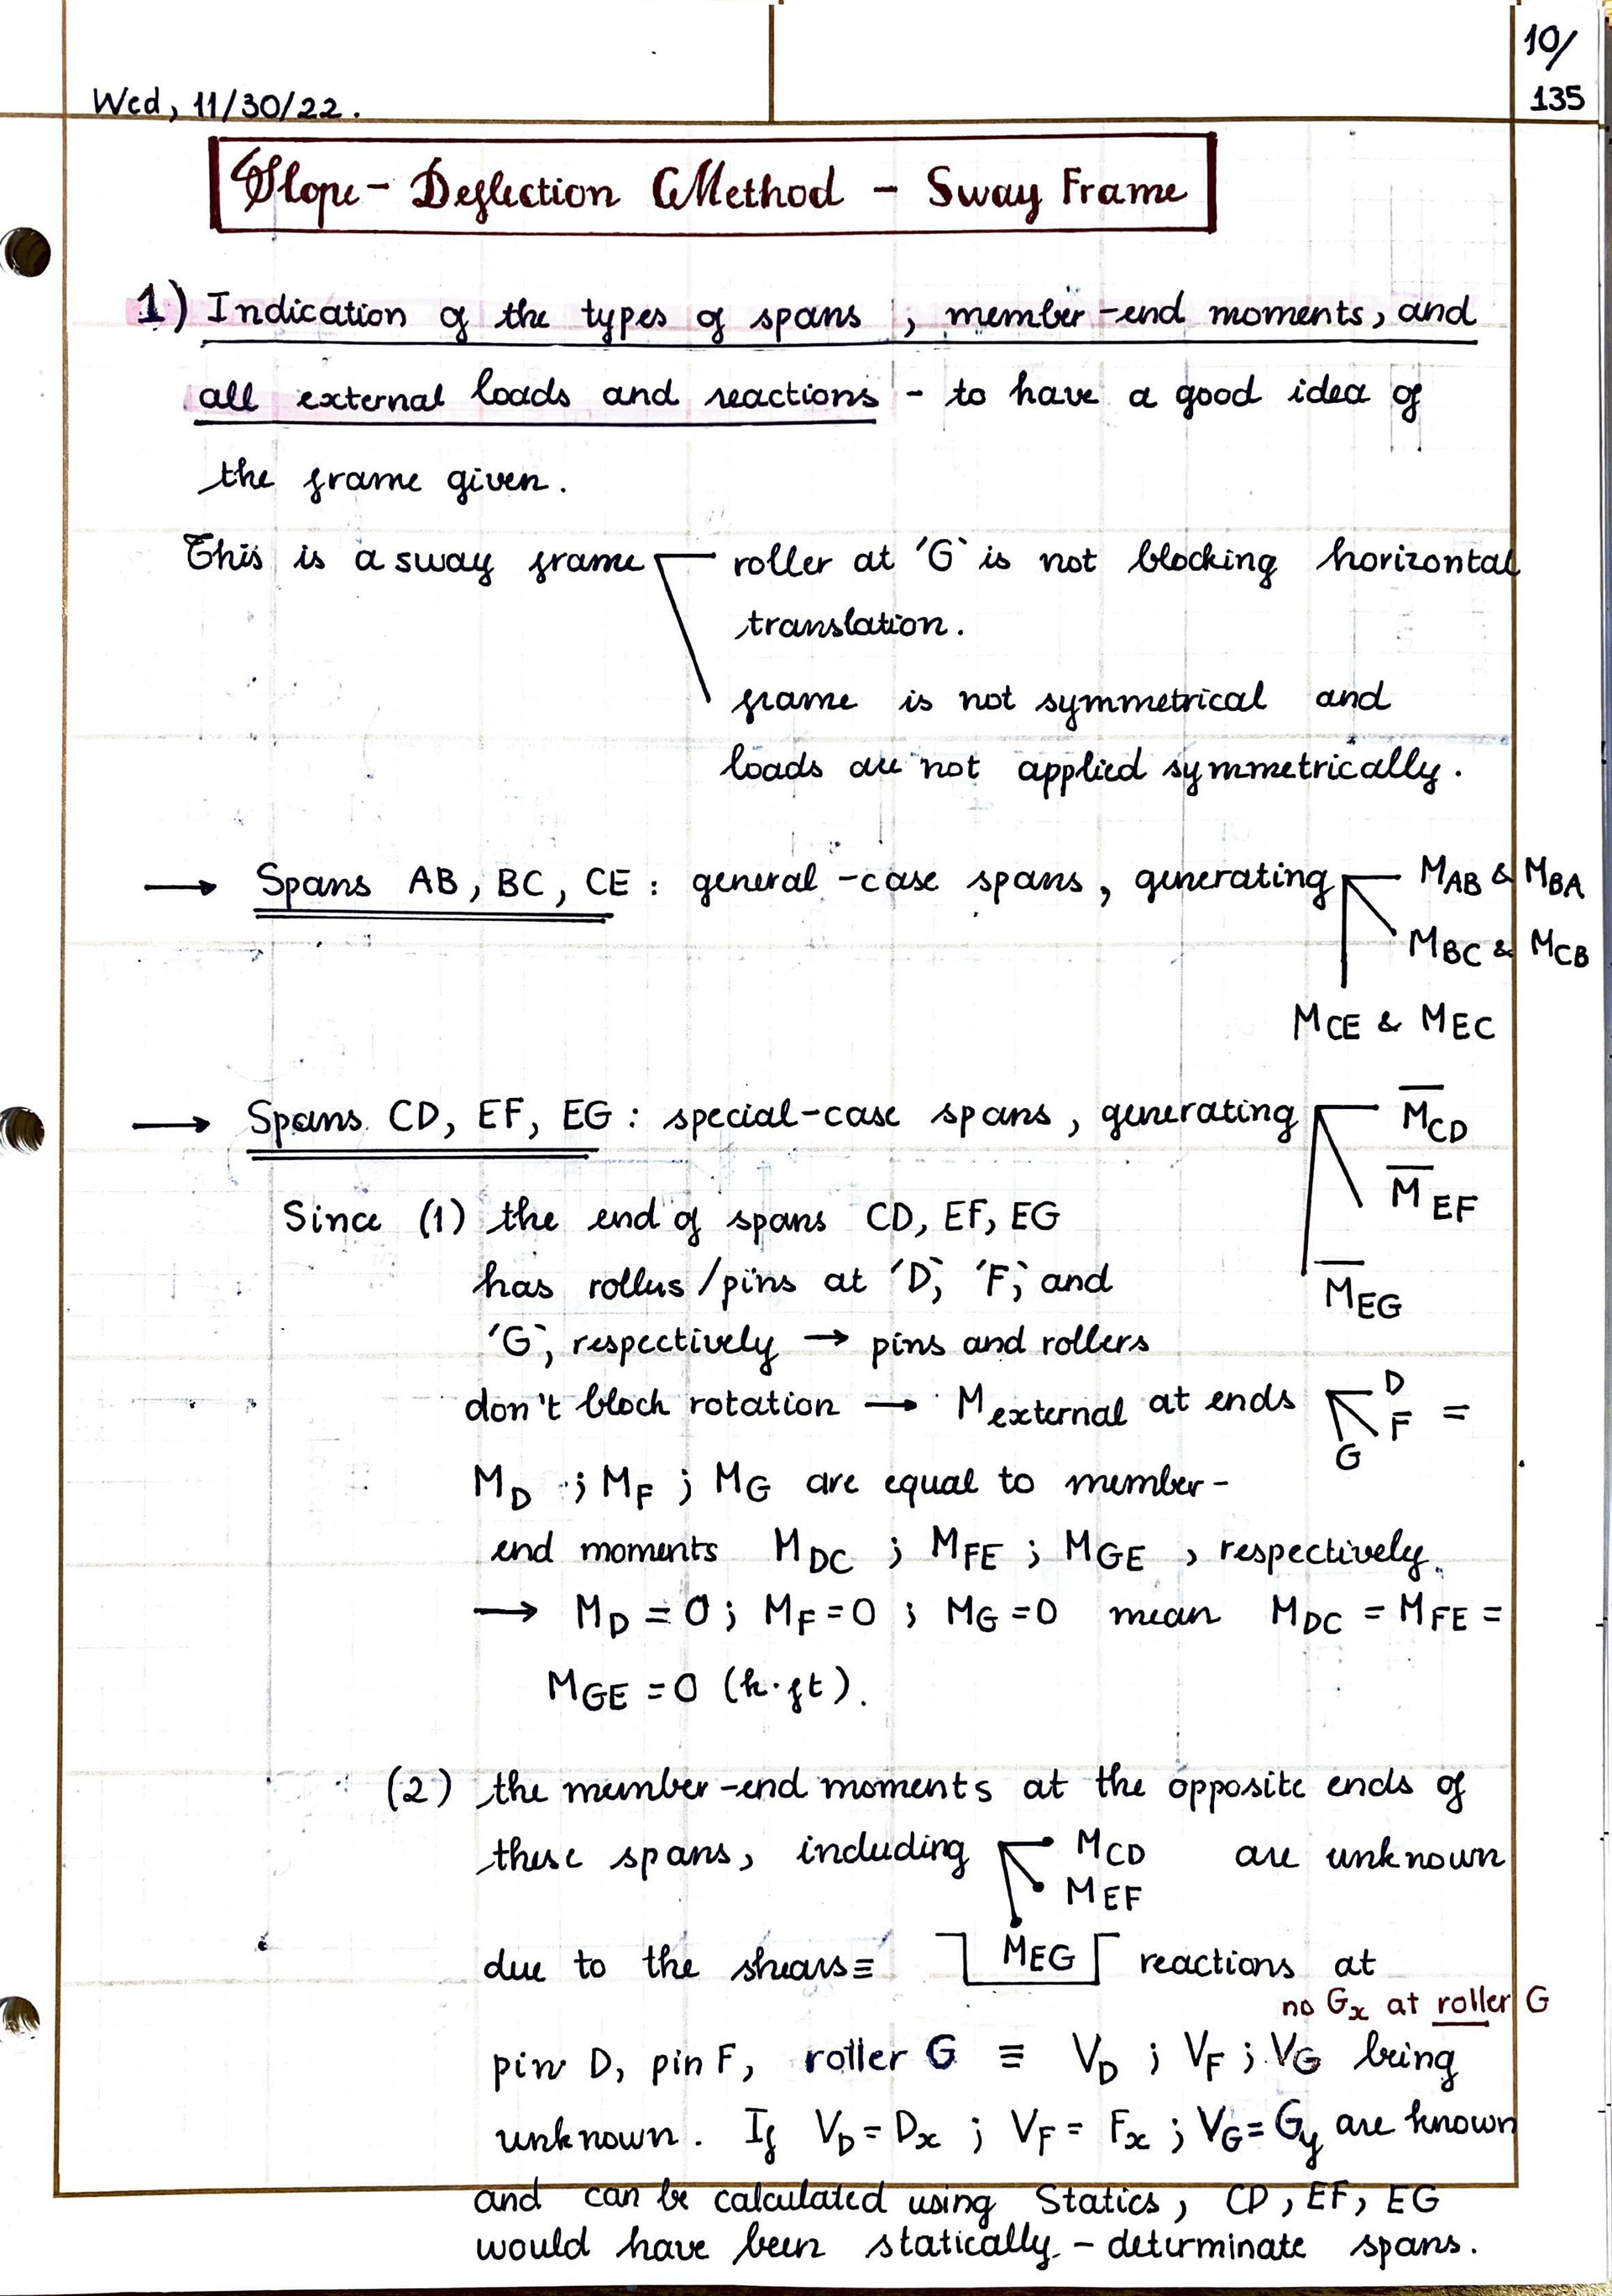 10/
135
Wed, 11/30/22.
Slope - Deflection Method - Sway Frame
1) Indication of the types of spans, member-end moments, and
all external loads and reactions - to have a good idea of
the frame given.
This is a sway frame roller at 'G' is not blocking horizontal
translation.
frame is not symmetrical and
loads are not applied symmetrically.
→ Spans AB, BC, CE : general-case spans, generating M_AB & M_BA
M_BC & M_CB
M_CE & M_EC
→ Spans CD, EF, EG : special-case spans, generating M̅_CD
M̅_EF
Since (1) the end of spans CD, EF, EG
has rollers/pins at 'D', 'F', and
M̅_EG
'G', respectively → pins and rollers
don't block rotation → M_external at ends D F G =
M_D ; M_F ; M_G are equal to member-
end moments M_DC ; M_FE ; M_GE , respectively.
→ M_D = 0 ; M_F = 0 ; M_G = 0 mean M_DC = M_FE =
M_GE = 0 (k·ft).
(2) the member-end moments at the opposite ends of
these spans, including M_CD are unknown
M_EF
due to the shears ≡ M_EG reactions at
no G_x at roller G
pin D, pin F, roller G ≡ V_D ; V_F ; V_G being
unknown. If V_D = D_x ; V_F = F_x ; V_G = G_y are known
and can be calculated using Statics, CD, EF, EG
would have been statically - determinate spans.